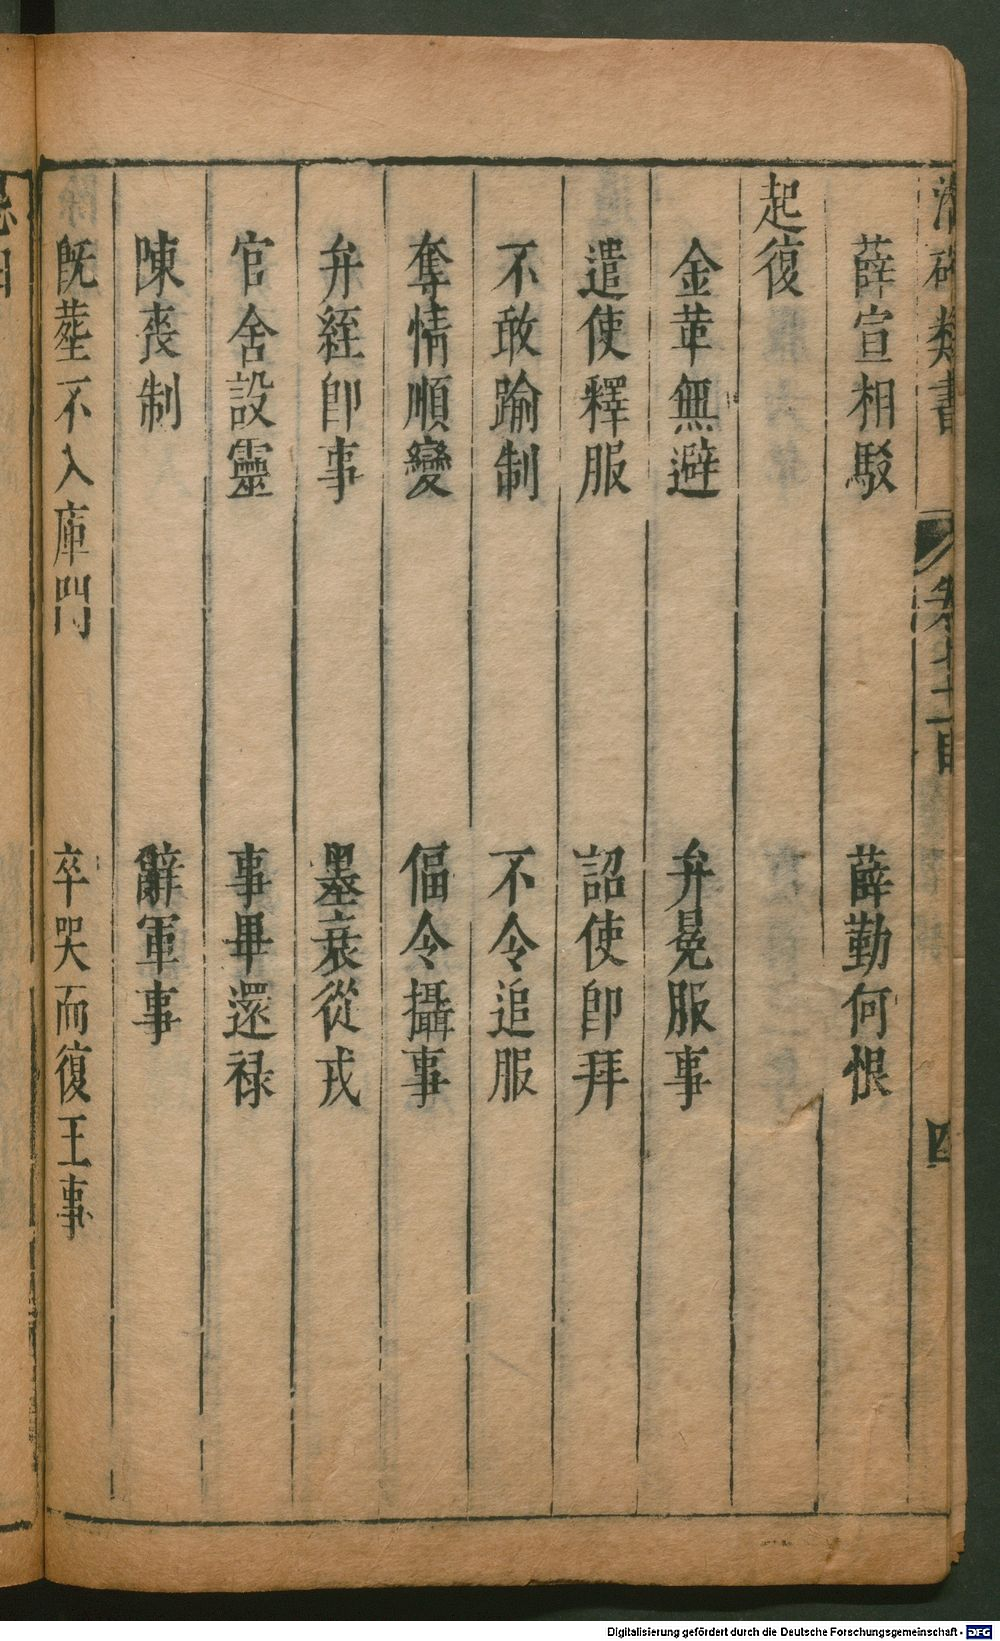 類書
薛宣相駁　薛勤何恨
起復
金革無避　弁冕服事
遣使釋服　詔使卽拜
不敢踰制　不令追服
奪情順變　偪令攝事
弁絰卽事　墨衰從戎
官舍設靈　事畢還祿
陳喪制　辭軍事
旣塟不入庫門　卒哭而復王事
四
Digitalisierung gefördert durch die Deutsche Forschungsgemeinschaft - DFG